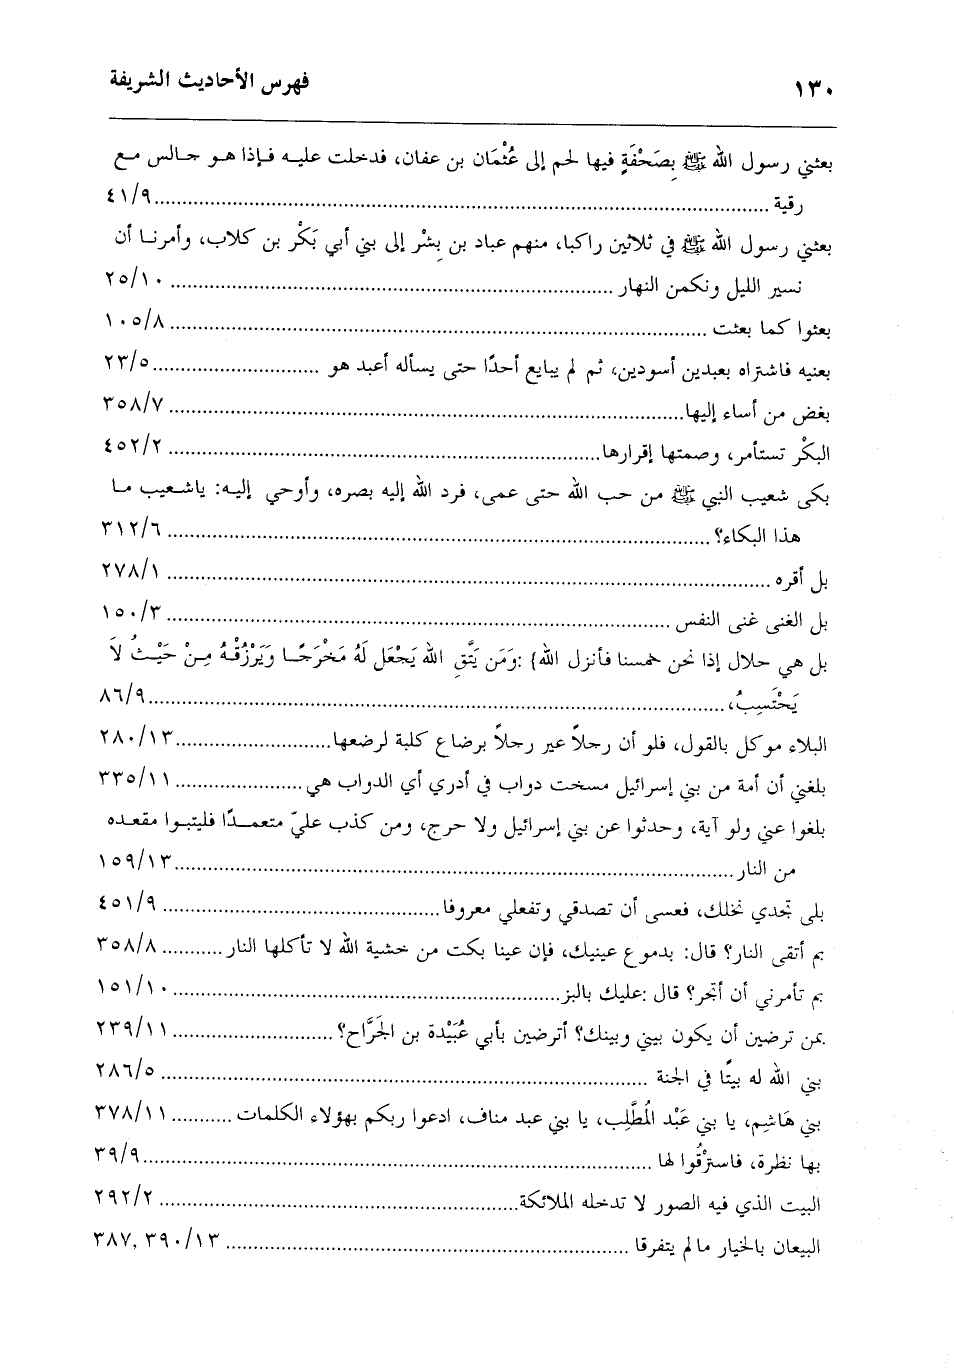 ١٣٠ فهرس الأحاديث الشريفة
بعثني رسول الله ﷺ بِصَحْفَةٍ فيها لحم إلى عُثْمَان بن عفان، فدخلت عليه فإذا هو جالس مع
رقية ........................................ ٤١/٩
بعثني رسول الله ﷺ في ثلاثين راكبا، منهم عباد بن بِشْر إلى بني أبي بَكْر بن كلاب، وأمرنا أن
نسير الليل ونكمن النهار ........................................ ٢٥/١٠
بعثوا كما بعثت ........................................ ١٠٥/٨
بعنيه فاشتراه بعبدين أسودين، ثم لم يبايع أحدًا حتى يسأله أعبد هو .............................. ٢٣/٥
بغض من أساء إليها ........................................ ٣٥٨/٧
البكْر تستأمر، وصمتها إقرارها ........................................ ٤٥٢/٢
بكى شعيب النبي ﷺ من حب الله حتى عمى، فرد الله إليه بصره، وأوحي إليه: ياشعيب ما
هذا البكاء؟ ........................................ ٣١٢/٦
بل أقره ........................................ ٢٧٨/١
بل الغنى غنى النفس ........................................ ١٥٠/٣
بل هي حلال إذا نحن خمسنا فأنزل الله} :وَمَن يَتَّقِ الله يَجْعَل لَهُ مَخْرَجًا وَيَرْزُقْهُ مِنْ حَيْثُ لَا
يَحْتَسِبُ، ........................................ ٨٦/٩
البلاء موكل بالقول، فلو أن رجلاً عير رجلاً برضاع كلبة لرضعها ............................ ٢٨٠/١٣
بلغني أن أمة من بني إسرائيل مسخت دواب في أدري أي الدواب هي ....................... ٣٣٥/١١
بلغوا عني ولو آية، وحدثوا عن بني إسرائيل ولا حرج، ومن كذب عليّ متعمدًا فليتبوا مقعده
من النار ........................................ ١٥٩/١٣
بلى تجدي نخلك، فعسى أن تصدقي وتفعلي معروفا ........................................ ٤٥١/٩
بم أتقى النار؟ قال: بدموع عينيك، فإن عينا بكت من خشية الله لا تأكلها النار ........... ٣٥٨/٨
بم تأمرني أن أتجر؟ قال :عليك بالبز ........................................ ١٥١/١٠
بمن ترضين أن يكون بيني وبينك؟ أترضين بأبي عُبَيْدة بن الجَرَّاح؟ ............................ ٢٣٩/١١
بني الله له بيتًا في الجنة ........................................ ٢٨٦/٥
بني هَاشِم، يا بني عَبْد المُطَّلِب، يا بني عبد مناف، ادعوا ربكم بهؤلاء الكلمات ........... ٣٧٨/١١
بها نظرة، فاسترْقُوا لها ........................................ ٣٩/٩
البيت الذي فيه الصور لا تدخله الملائكة ........................................ ٢٩٢/٢
البيعان بالخيار مالم يتفرقا ........................................ ٣٨٧, ٣٩٠/١٣